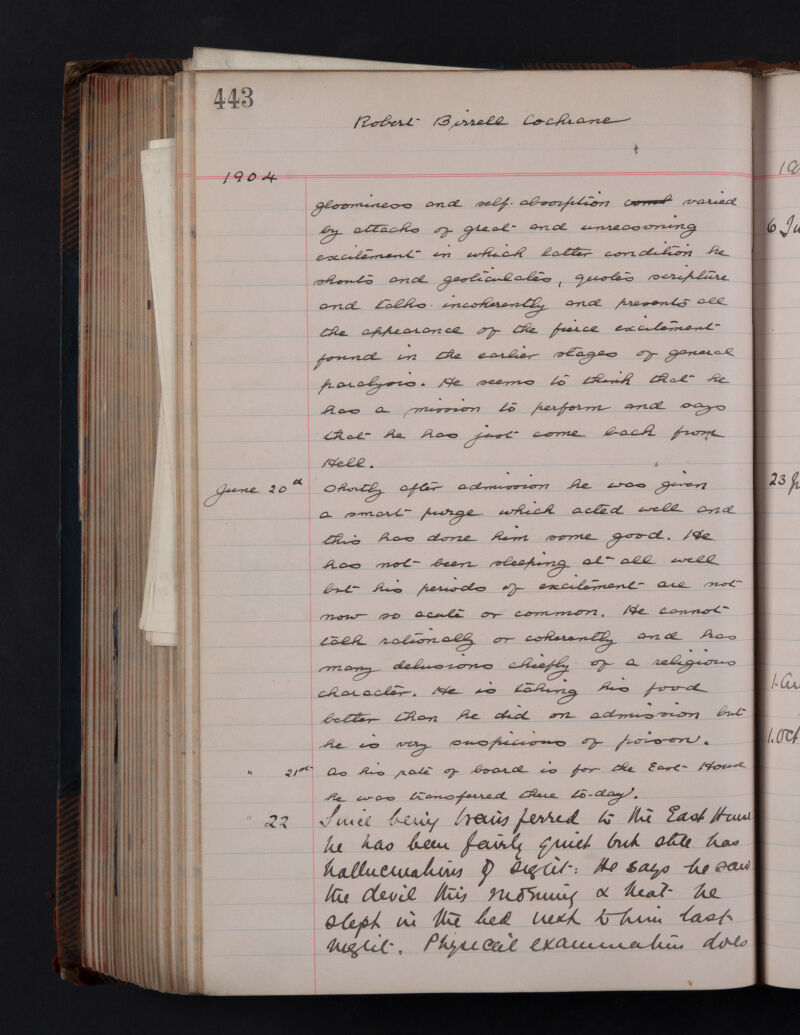 443
Robert Birrell Cochrane
1904
gloominess and self-absorption varied
by attacks of great and unreasoning
excitement in which latter condition he
shouts and gesticulates, quotes scripture
and talks incoherently and presents all
the appearance of the fierce excitement
found in the earlier stages of general
paralysis. He seems to think that he
has a mission to perform and says
that he has just come back from
Hell.
June 20th Shortly after admission he was given
a smart purge which acted well and
this has done him some good. He
has not been sleeping at all well
but his periods of excitement are not
now so acute or common. He cannot
talk rationally or coherently and has
many delusions chiefly of a religious
character. He is taking his food
better than he did on admission but
he is very suspicious of poison.
" 21st As his rate of board is for the East House
he was transferred there to-day.
" 22 Since being transferred to the East House
he has been fairly quiet but still has
hallucinations of sight: He says he saw
the devil this morning & that he
slept in the bed next to him last
night. Physical examination does
6 Ju
23
1. Oct